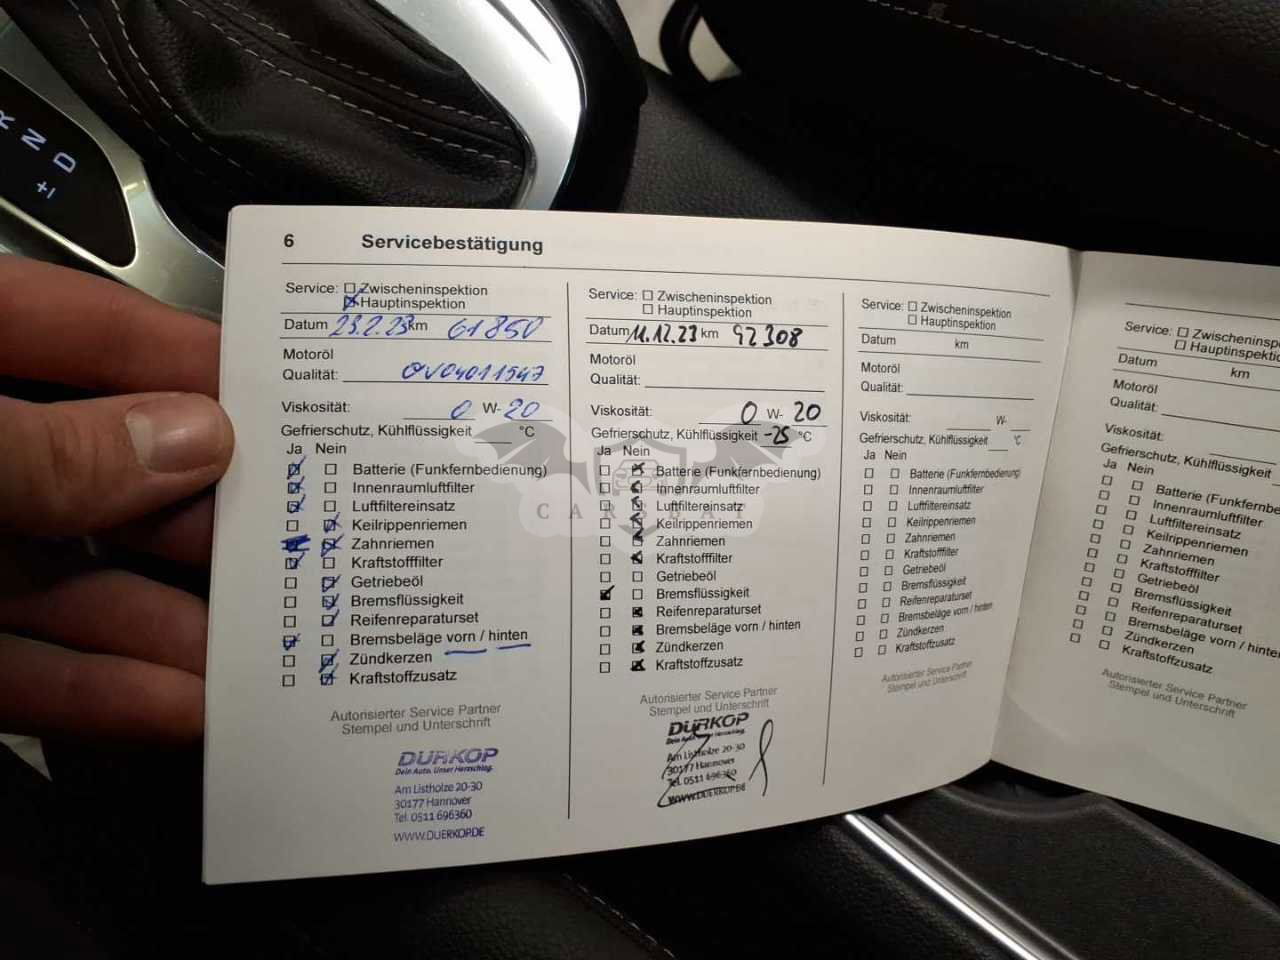 R
N
D
+/-
6 Servicebestätigung
Service: Zwischeninspektion
Hauptinspektion
Datum 23.2.23 km 61850
Motoröl
Qualität: OV04011547
Viskosität: 0 W- 20
Gefrierschutz, Kühlflüssigkeit °C
Ja Nein
Batterie (Funkfernbedienung)
Innenraumluftfilter
Luftfiltereinsatz
Keilrippenriemen
Zahnriemen
Kraftstofffilter
Getriebeöl
Bremsflüssigkeit
Reifenreparaturset
Bremsbeläge vorn / hinten
Zündkerzen
Kraftstoffzusatz
Autorisierter Service Partner
Stempel und Unterschrift
DÜRKOP
Dein Auto. Unser Herzschlag.
Am Listholze 20-30
30177 Hannover
Tel. 0511 696360
WWW.DUERKOP.DE
Service: Zwischeninspektion
Hauptinspektion
Datum 11.12.23 km 92308
Motoröl
Qualität:
Viskosität: 0 W- 20
Gefrierschutz, Kühlflüssigkeit -25 °C
Ja Nein
Batterie (Funkfernbedienung)
Innenraumluftfilter
Luftfiltereinsatz
Keilrippenriemen
Zahnriemen
Kraftstofffilter
Getriebeöl
Bremsflüssigkeit
Reifenreparaturset
Bremsbeläge vorn / hinten
Zündkerzen
Kraftstoffzusatz
Autorisierter Service Partner
Stempel und Unterschrift
DÜRKOP
Dein Auto. Unser Herzschlag.
Am Listholze 20-30
30177 Hannover
Tel. 0511 696360
WWW.DUERKOP.DE
CARSBAT
Service: Zwischeninspektion
Hauptinspektion
Datum km
Motoröl
Qualität:
Viskosität: W-
Gefrierschutz, Kühlflüssigkeit °C
Ja Nein
Batterie (Funkfernbedienung)
Innenraumluftfilter
Luftfiltereinsatz
Keilrippenriemen
Zahnriemen
Kraftstofffilter
Getriebeöl
Bremsflüssigkeit
Reifenreparaturset
Bremsbeläge vorn / hinten
Zündkerzen
Kraftstoffzusatz
Autorisierter Service Partner
Stempel und Unterschrift
Service: Zwischeninsp
Hauptinspektio
Datum km
Motoröl
Qualität:
Viskosität:
Gefrierschutz, Kühlflüssigkeit
Ja Nein
Batterie (Funkfernb
Innenraumluftfilter
Luftfiltereinsatz
Keilrippenriemen
Zahnriemen
Kraftstofffilter
Getriebeöl
Bremsflüssigkeit
Reifenreparaturset
Bremsbeläge vorn / hinten
Zündkerzen
Kraftstoffzusatz
Autorisierter Service Partner
Stempel und Unterschrift